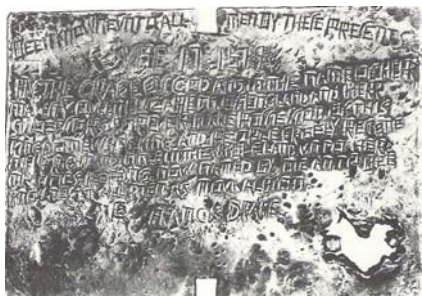 BEE IT KNOWNE VNTO ALL MEN BY THESE PRESENTS
IVNE 17 1579
BY THE GRACE OF GOD AND IN THE NAME OF HERR
QVEEN ELIZABETH OF ENGLAND AND HERR
SVCCESSORS FOREVER I TAKE POSSESSION OF THIS
KINGDOME WHOSE KING AND PEOPLE FREELY RESIGNE
THEIR RIGHT AND TITLE IN THE WHOLE LAND VNTO HERR
KEEPEING NOW NAMED BY ME AN TO BEE
KNOWNE VNTO ALL MEN AS NOVA ALBION
FRANCIS DRAKE